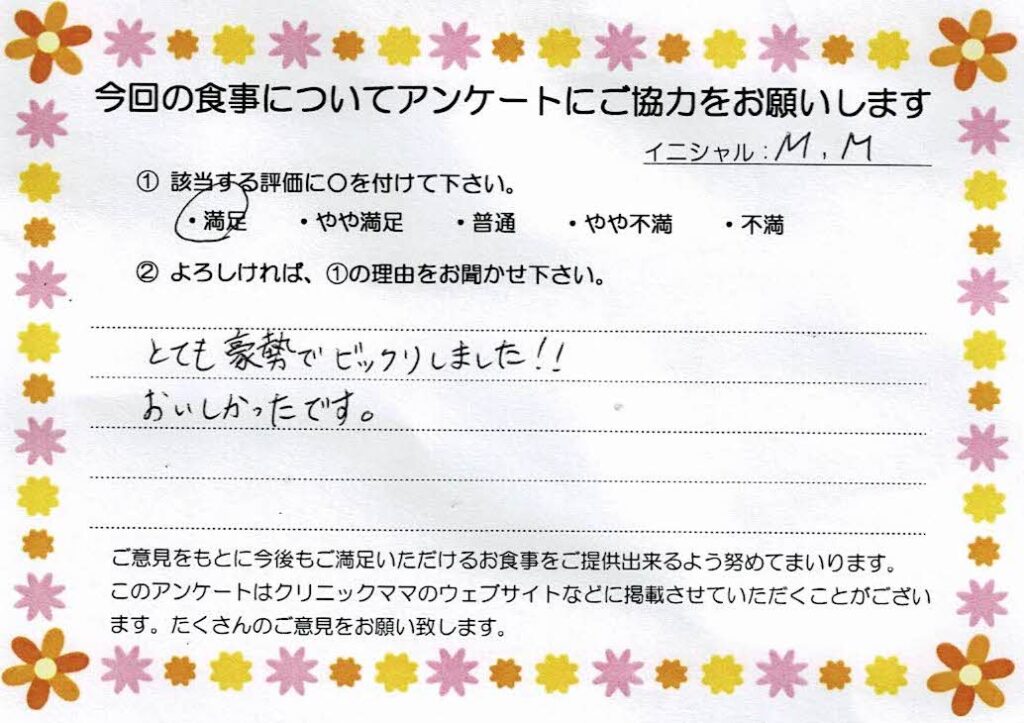 今回の食事についてアンケートにご協力をお願いします
イニシャル：M，M
① 該当する評価に〇を付けて下さい。
・満足　・やや満足　・普通　・やや不満　・不満
② よろしければ、①の理由をお聞かせ下さい。
とても豪勢でビックリしました!!
おいしかったです。
ご意見をもとに今後もご満足いただけるお食事をご提供出来るよう努めてまいります。
このアンケートはクリニックママのウェブサイトなどに掲載させていただくことがござい
ます。たくさんのご意見をお願い致します。